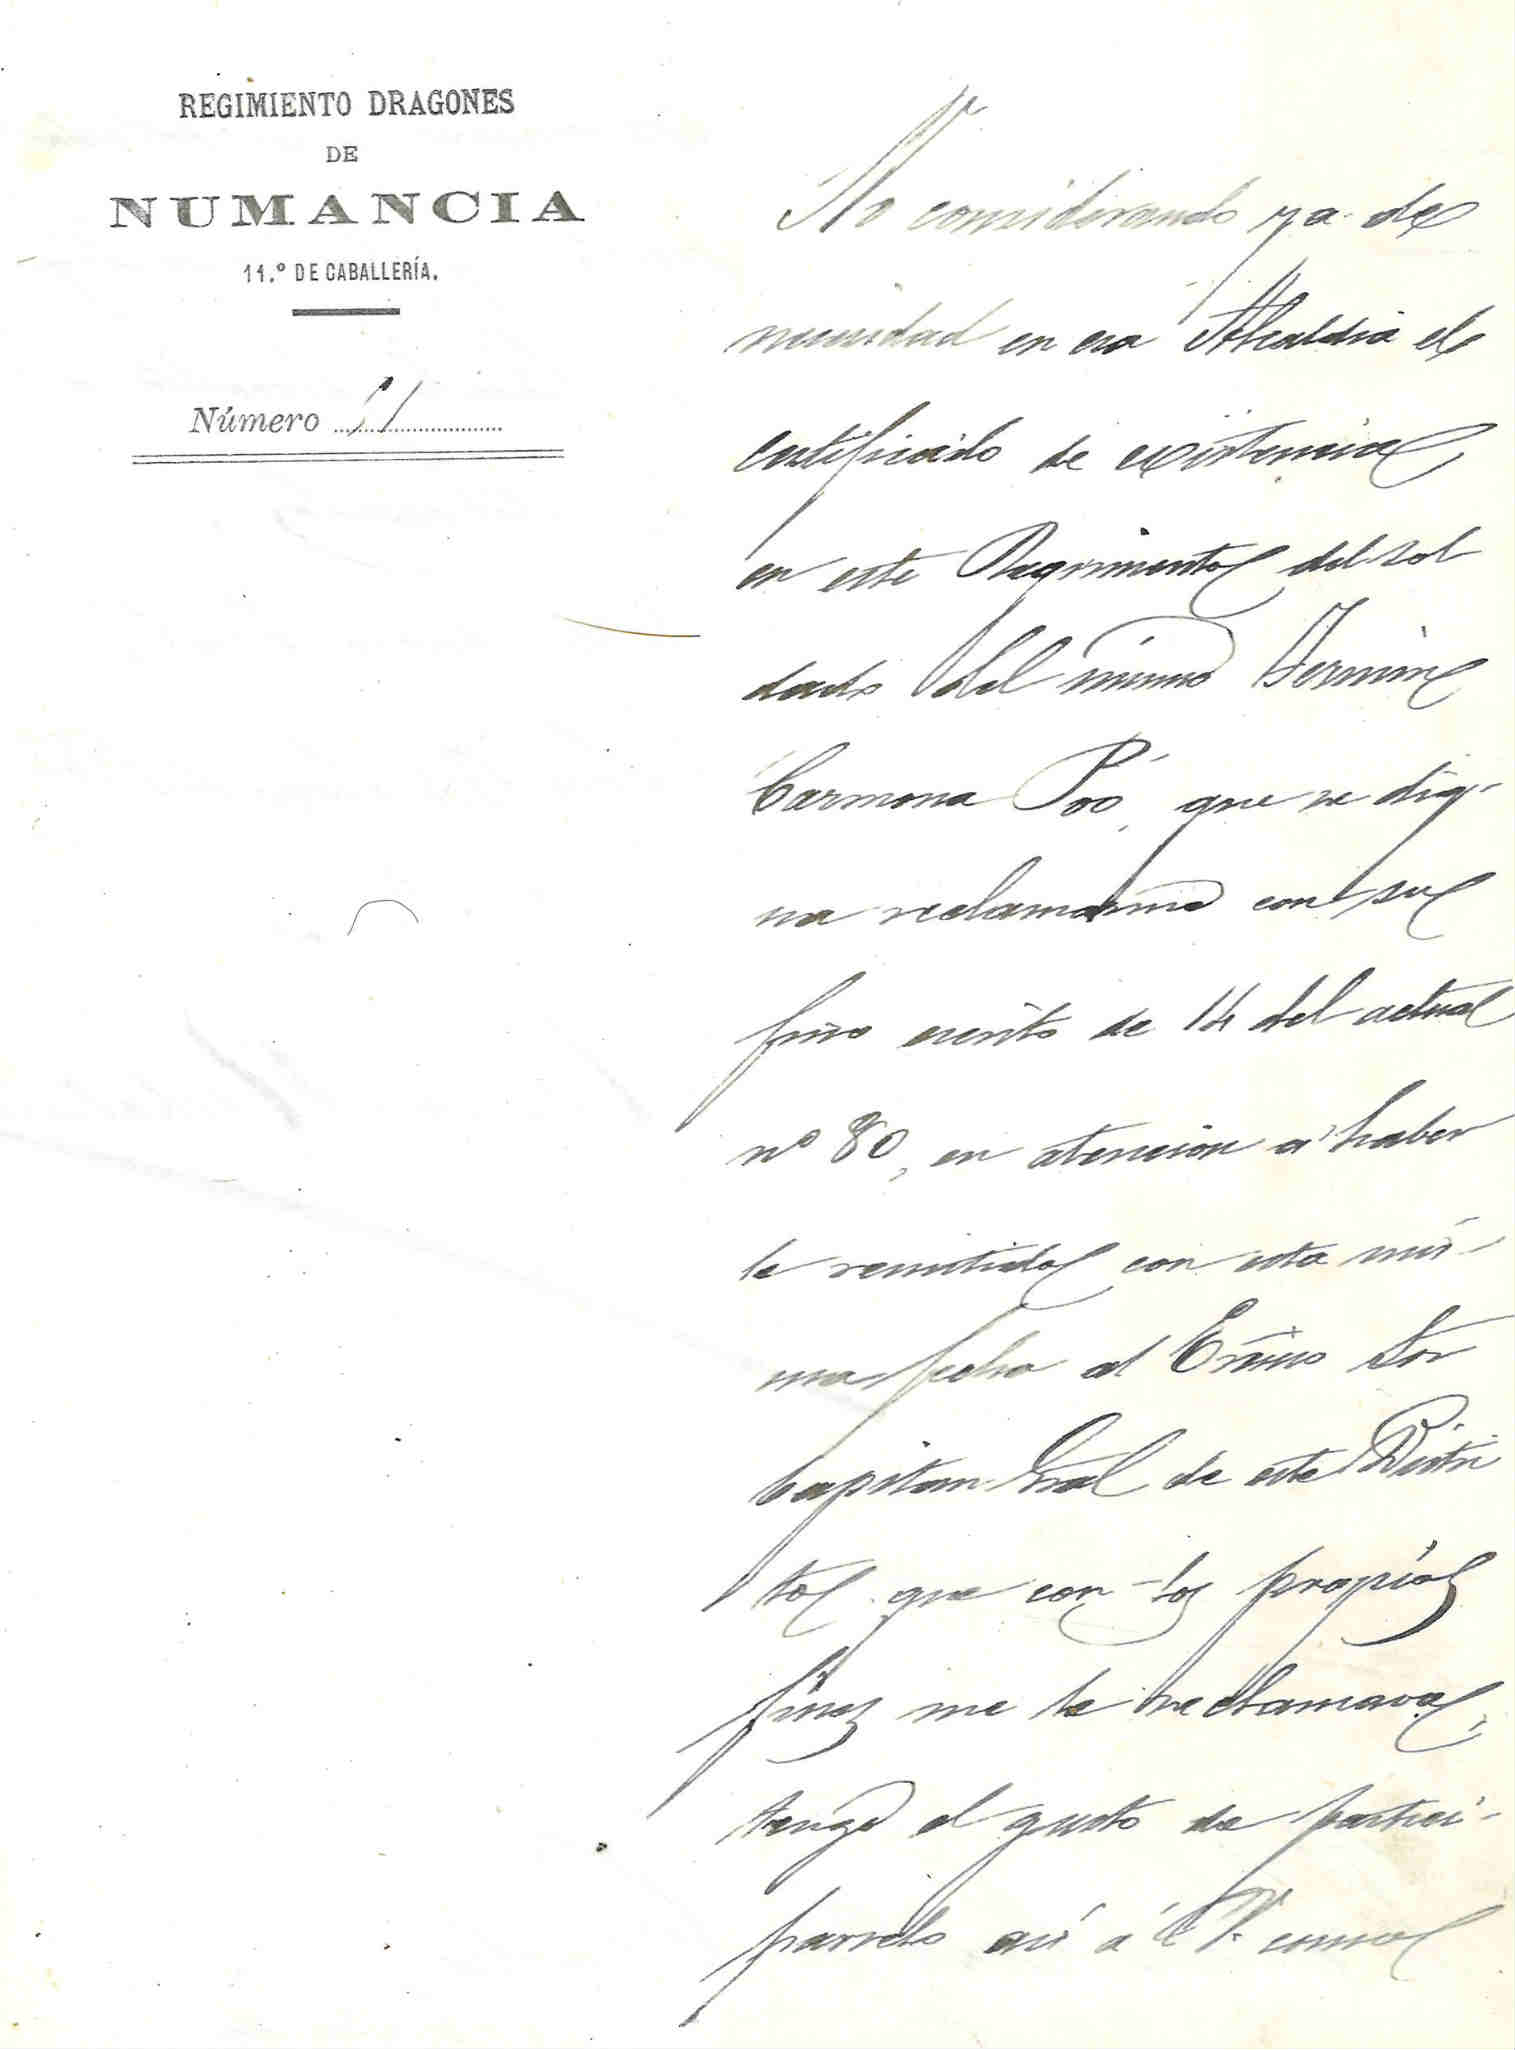 REGIMIENTO DRAGONES
DE
NUMANCIA
11.º DE CABALLERÍA.
Número 51
No considerando ya de
necesidad en esa Alcaldia el
certificado de existencia
en este Regimiento del sol
dado del mismo Fermin
Carmona Poó, que se dig-
na reclamarme con su
fino escrito de 14 del actual
nº 80, en atencion á haber
le remitido con esta mis-
ma fecha al Exmo Sor
Capitan Gral de este Distri
to que con los propios
fines me le reclamava,
tengo el gusto de partici-
parselo así á V. como